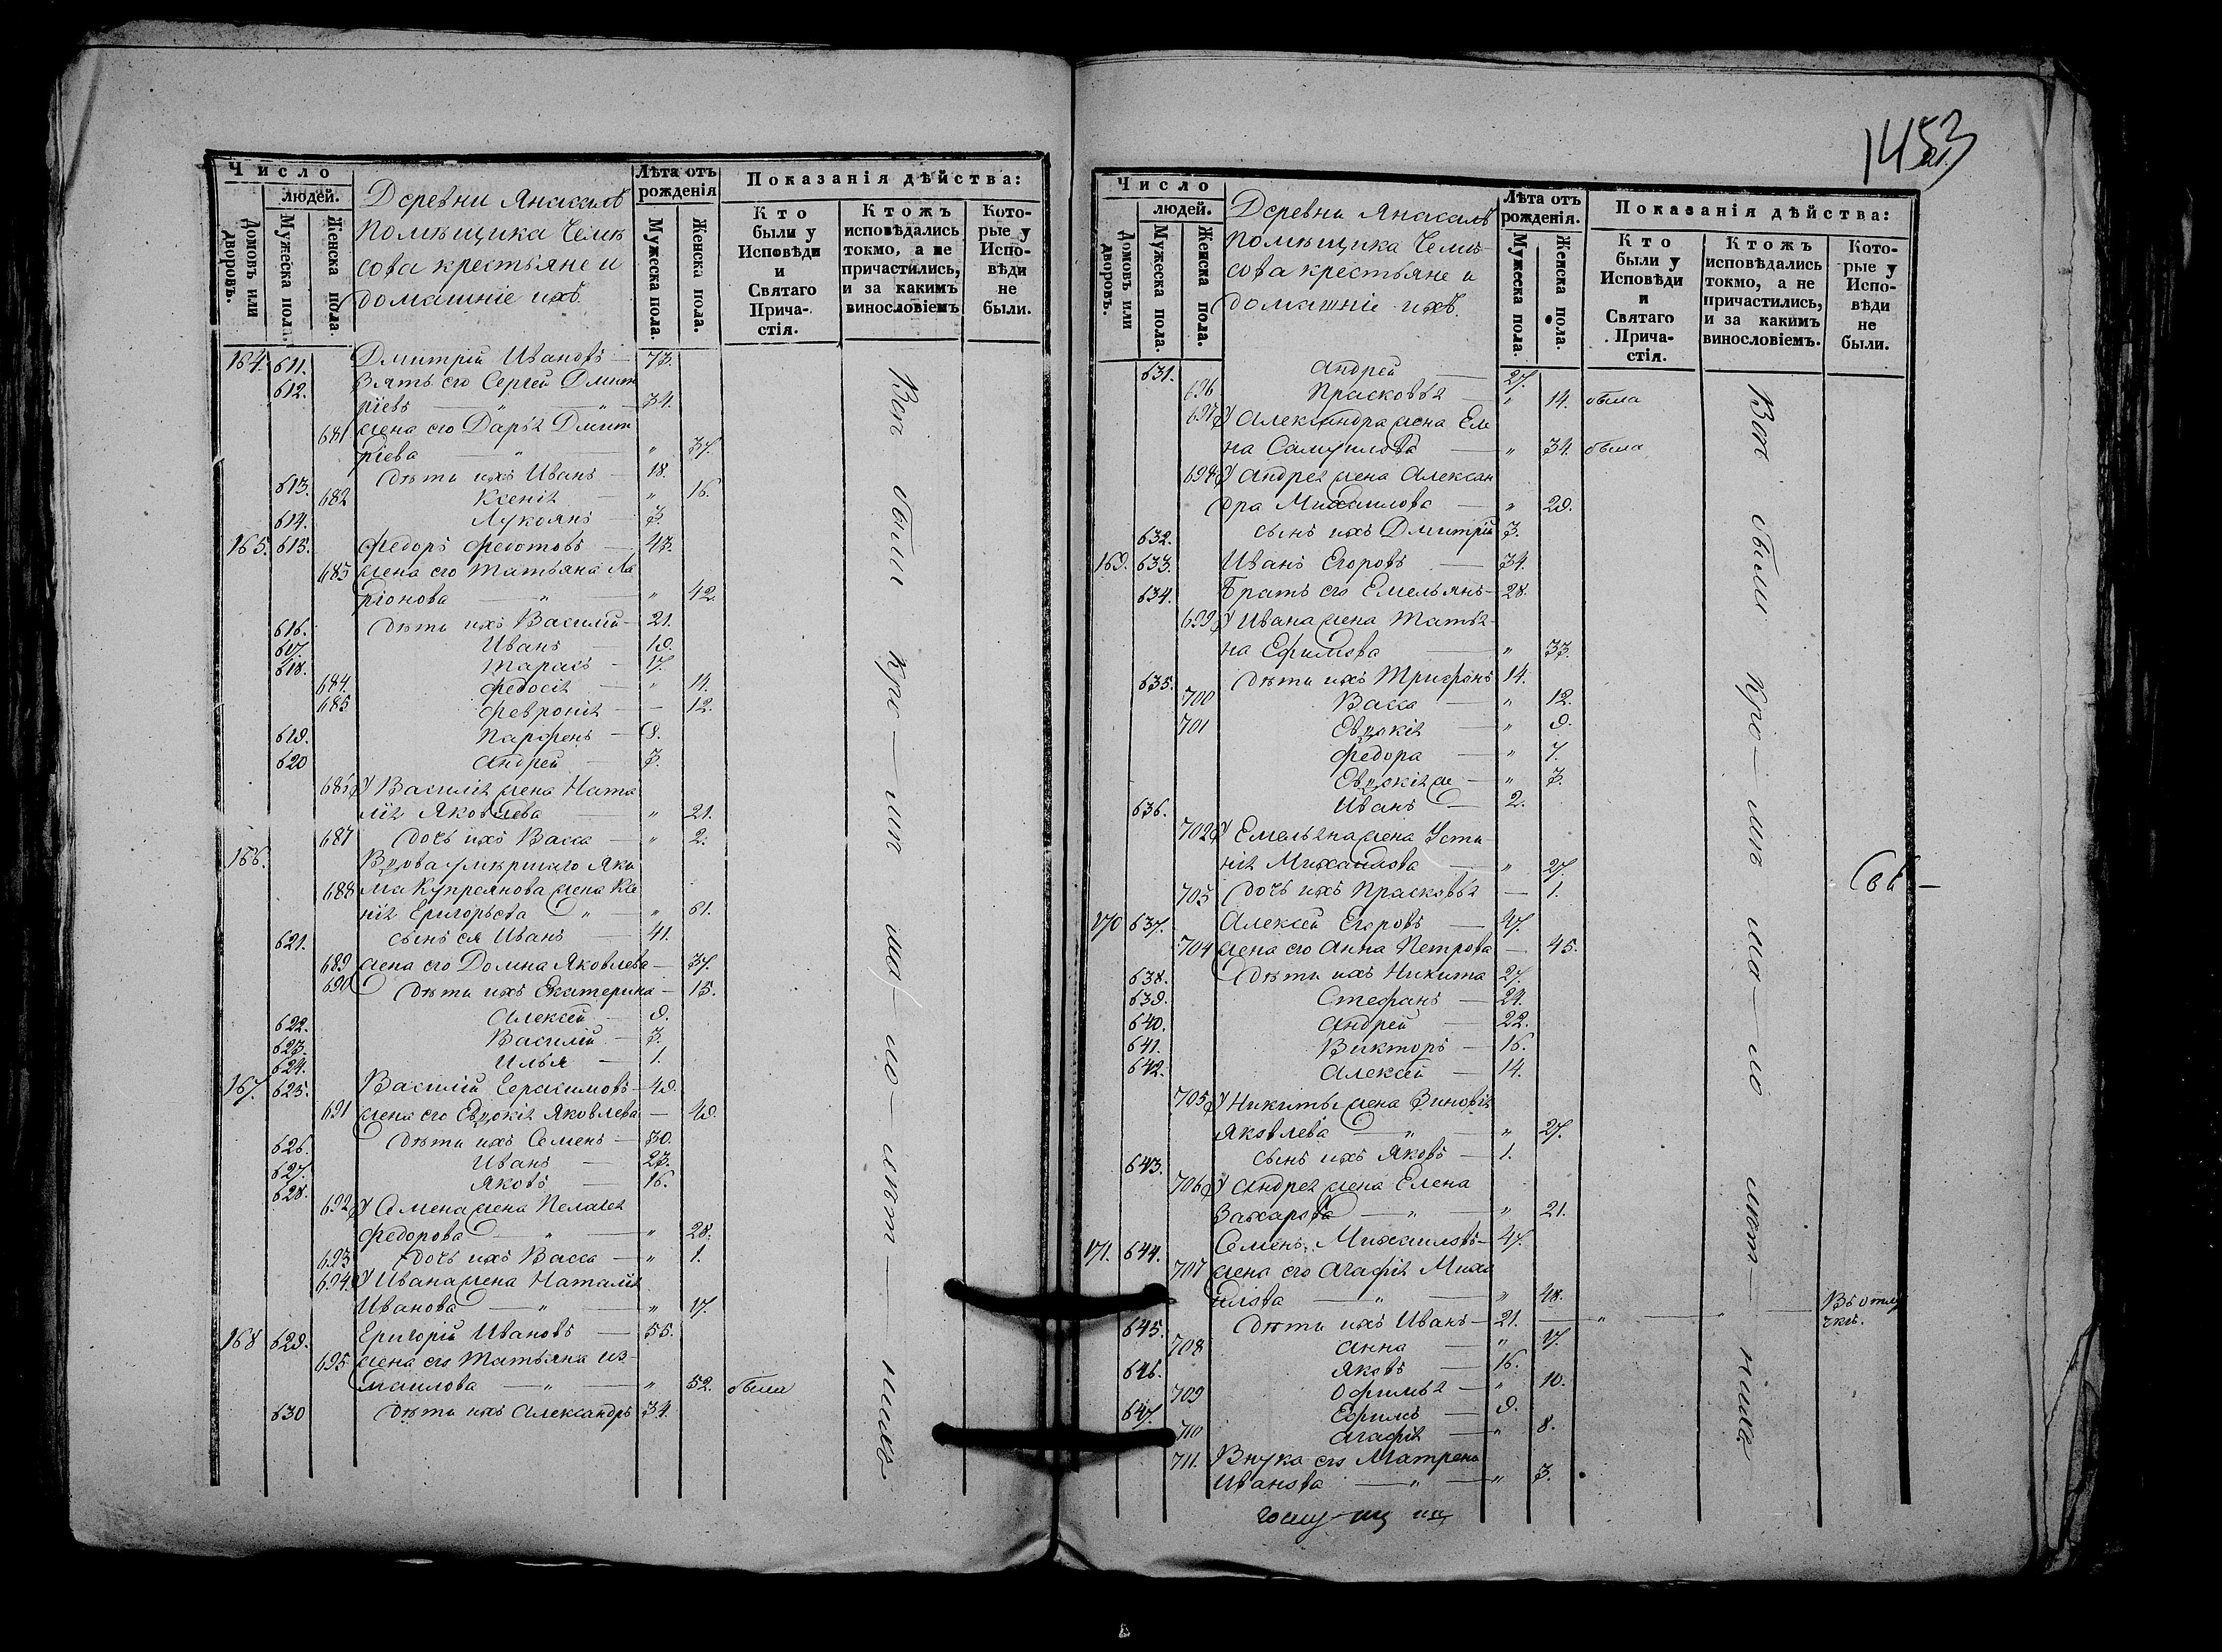 Число
людей.
Домовъ или дворовъ.
Мужеска пола.
Женска пола.
Деревни
помѣщика
сова крестьяне и
домашніе ихъ.
Лѣта отъ рожденія
Мужеска пола.
Женска пола.
Показанія дѣйства:
Кто были у Исповѣди и Святаго Причастія.
Ктожъ исповѣдались токмо, а не причастились, и за какимъ винословіемъ
Которые у Исповѣди не были.
164. 611. Дмитрій Ивановъ — 73.
612. Зять его Сергей Дмит
ріевъ — " — " — 34.
681 жена его Дарья Дмит
ріева — " " 37.
613. дѣти ихъ Иванъ — 18.
682 Ксенія — " 16.
614. Лукоянъ — 3.
165. 615. Федоръ Федотовъ — 43.
683 жена его Татьяна Ла
ріонова — " — " 42.
616. дѣти ихъ Василій — 21.
617. Иванъ — 19.
618. Тарасъ — 17.
684. Федосія — " 14.
685 Февронія — — 12.
619. Парфенъ — 9.
620 Андрей — 3.
686 У Василія жена Ната
лія Яковлева — " 21.
687 дочь ихъ Васса — " 2.
166. Вдова умершаго Яки
688 ма Купреянова жена Ксе
нія Григорьева " — " 61.
621. сынъ ея Иванъ — 41.
689 жена его Домна Яковлева — 37.
690 дѣти ихъ Екатерина — 15.
622. Алексей — 9.
623. Василій — 3.
624. Илья — 1.
167. 625. Василій Герасимовъ — 49.
691 жена его Евдокія Яковлева — 49.
626. дѣти ихъ Семенъ — 30.
627. Иванъ — 23.
628. Яковъ — 16.
692 У Семена жена Пелагея
Федорова — " — " 28.
693 дочь ихъ Васса — " 1.
694 У Ивана жена Наталія
Иванова — " — " 17.
168 629. Григорій Ивановъ — 55.
695 жена его Татьяна Из
маилова — " — " 52. была
630 дѣти ихъ Александръ 34.
Вси были
1453
Число
людей.
Домовъ или дворовъ.
Мужеска пола.
Женска пола.
Деревни
помѣщика
сова крестьяне и
домашніе ихъ.
Лѣта отъ рожденія.
Мужеска пола.
Женска пола.
Показанія дѣйства:
Кто были у Исповѣди и Святаго Причастія.
Ктожъ исповѣдались токмо, а не причастились, и за какимъ винословіемъ.
Которые у Исповѣди не были.
631. Андрей — 27.
696 Прасковья — " 14. была
697 У Александра жена Еле
на Самуилова — " 34. была
698 У Андрея жена Алексан
дра Михаилова — " 29.
632. сынъ ихъ Дмитрій 3.
169. 633. Иванъ Егоровъ — 34.
634. Братъ его Емельянъ — 28.
699 У Ивана жена Татья
на Ефимова — " 33.
635. дѣти ихъ Трифонъ 14.
700 Васса — " 12.
701 Евдокія — " 9.
Федора — " 7.
Евдокія же — " 3.
636. Иванъ — 2.
702 У Емельяна жена Усти
нія Михаилова — " 27.
703 дочь ихъ Прасковья — 1.
170 637. Алексей Егоровъ — 47.
704 жена его Анна Петрова — 45.
638. дѣти ихъ Никита 27.
639. Стефанъ — 24.
640. Андрей — 22.
641. Викторъ — 16.
642. Алексей — 14.
705 У Никиты жена Зиновія
Яковлева — " — " 27.
643. сынъ ихъ Яковъ — 1.
706 У Андрея жена Елена
Захарова — " — " 21.
171. 644. Семенъ Михаиловъ — 47.
707 жена его Агафія Миха
илова — " — " 48.
645. дѣти ихъ Иванъ — 21. — " — " — Въ отлу
чкѣ.
708 Анна — " 17.
646. Яковъ — 16.
709 Офимья — " 10.
647. Ефимъ — 9.
710 Агафія — " 8.
711. Внука его Матрена
Иванова — " — " 3.
Вси были